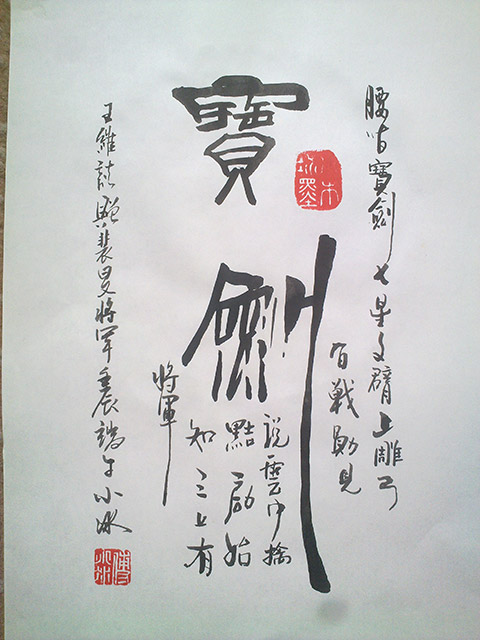 寶劍
腰間寶劍七星文臂上雕弓
百戰勛見
説雲中擒
點虜始
知天上有
將軍
王維詩贈裴旻將軍壬辰端午小冰